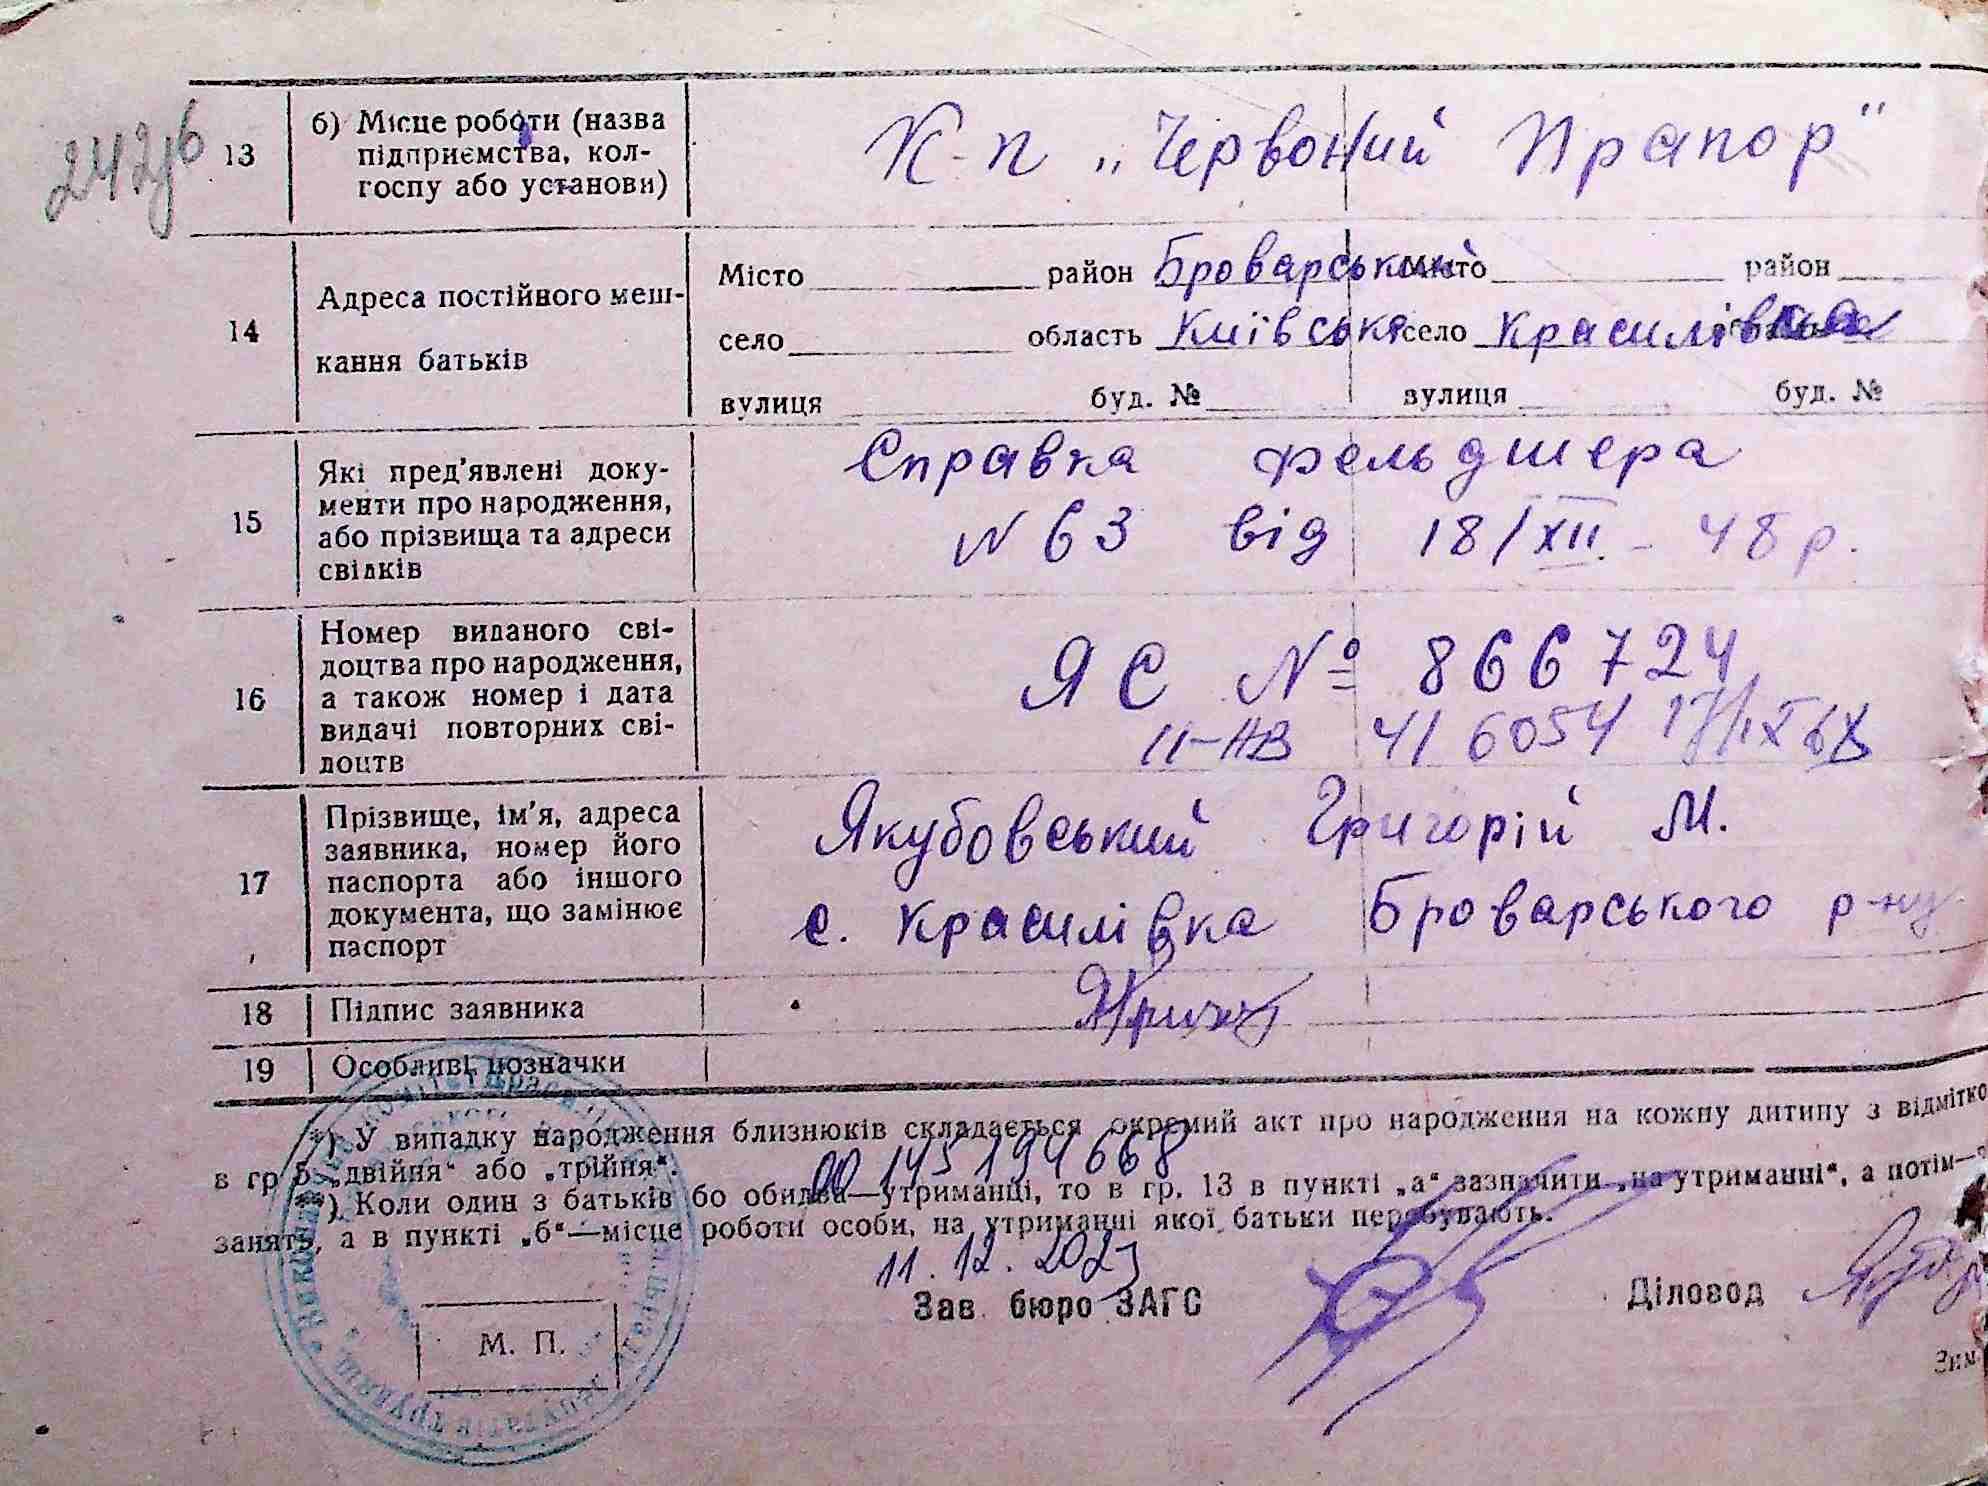 242 уб
13 б) Місце роботи (назва К-п „Червоний Прапор"
підприємства, кол-
госпу або установи)
14 Адреса постійного меш-
кання батьків
Місто район Броварський Місто район
село область Київська село Красилівка
вулиця буд. № вулиця буд. №
15 Які пред'явлені доку- Справка фельдшера
менти про народження, N 63 від 18/XII - 48 р.
або прізвища та адреси
свідків
16 Номер виданого сві- ЯС № 866724
доцтва про народження, II-АВ 416054
а також номер і дата
видачі повторних сві-
доцтв
17 Прізвище, ім'я, адреса Якубовський Григорій М.
заявника, номер його
паспорта або іншого с. Красилівка Броварського р-ну
документа, що замінює
паспорт
18 Підпис заявника
19 Особливі позначки
*) У випадку народження близнюків складається окремий акт про народження на кожну дитину з відмітко
в гр. 5 „двійня" або „трійня".
00145194668
**) Коли один з батьків бо обидва—утриманці, то в гр. 13 в пункті „а" зазначити „на утриманні", а потім—
занять, а в пункті „б"—місце роботи особи, на утриманні якої батьки перебувають.
11.12.2023
Зав. бюро ЗАГС Діловод
М. П.
Зим